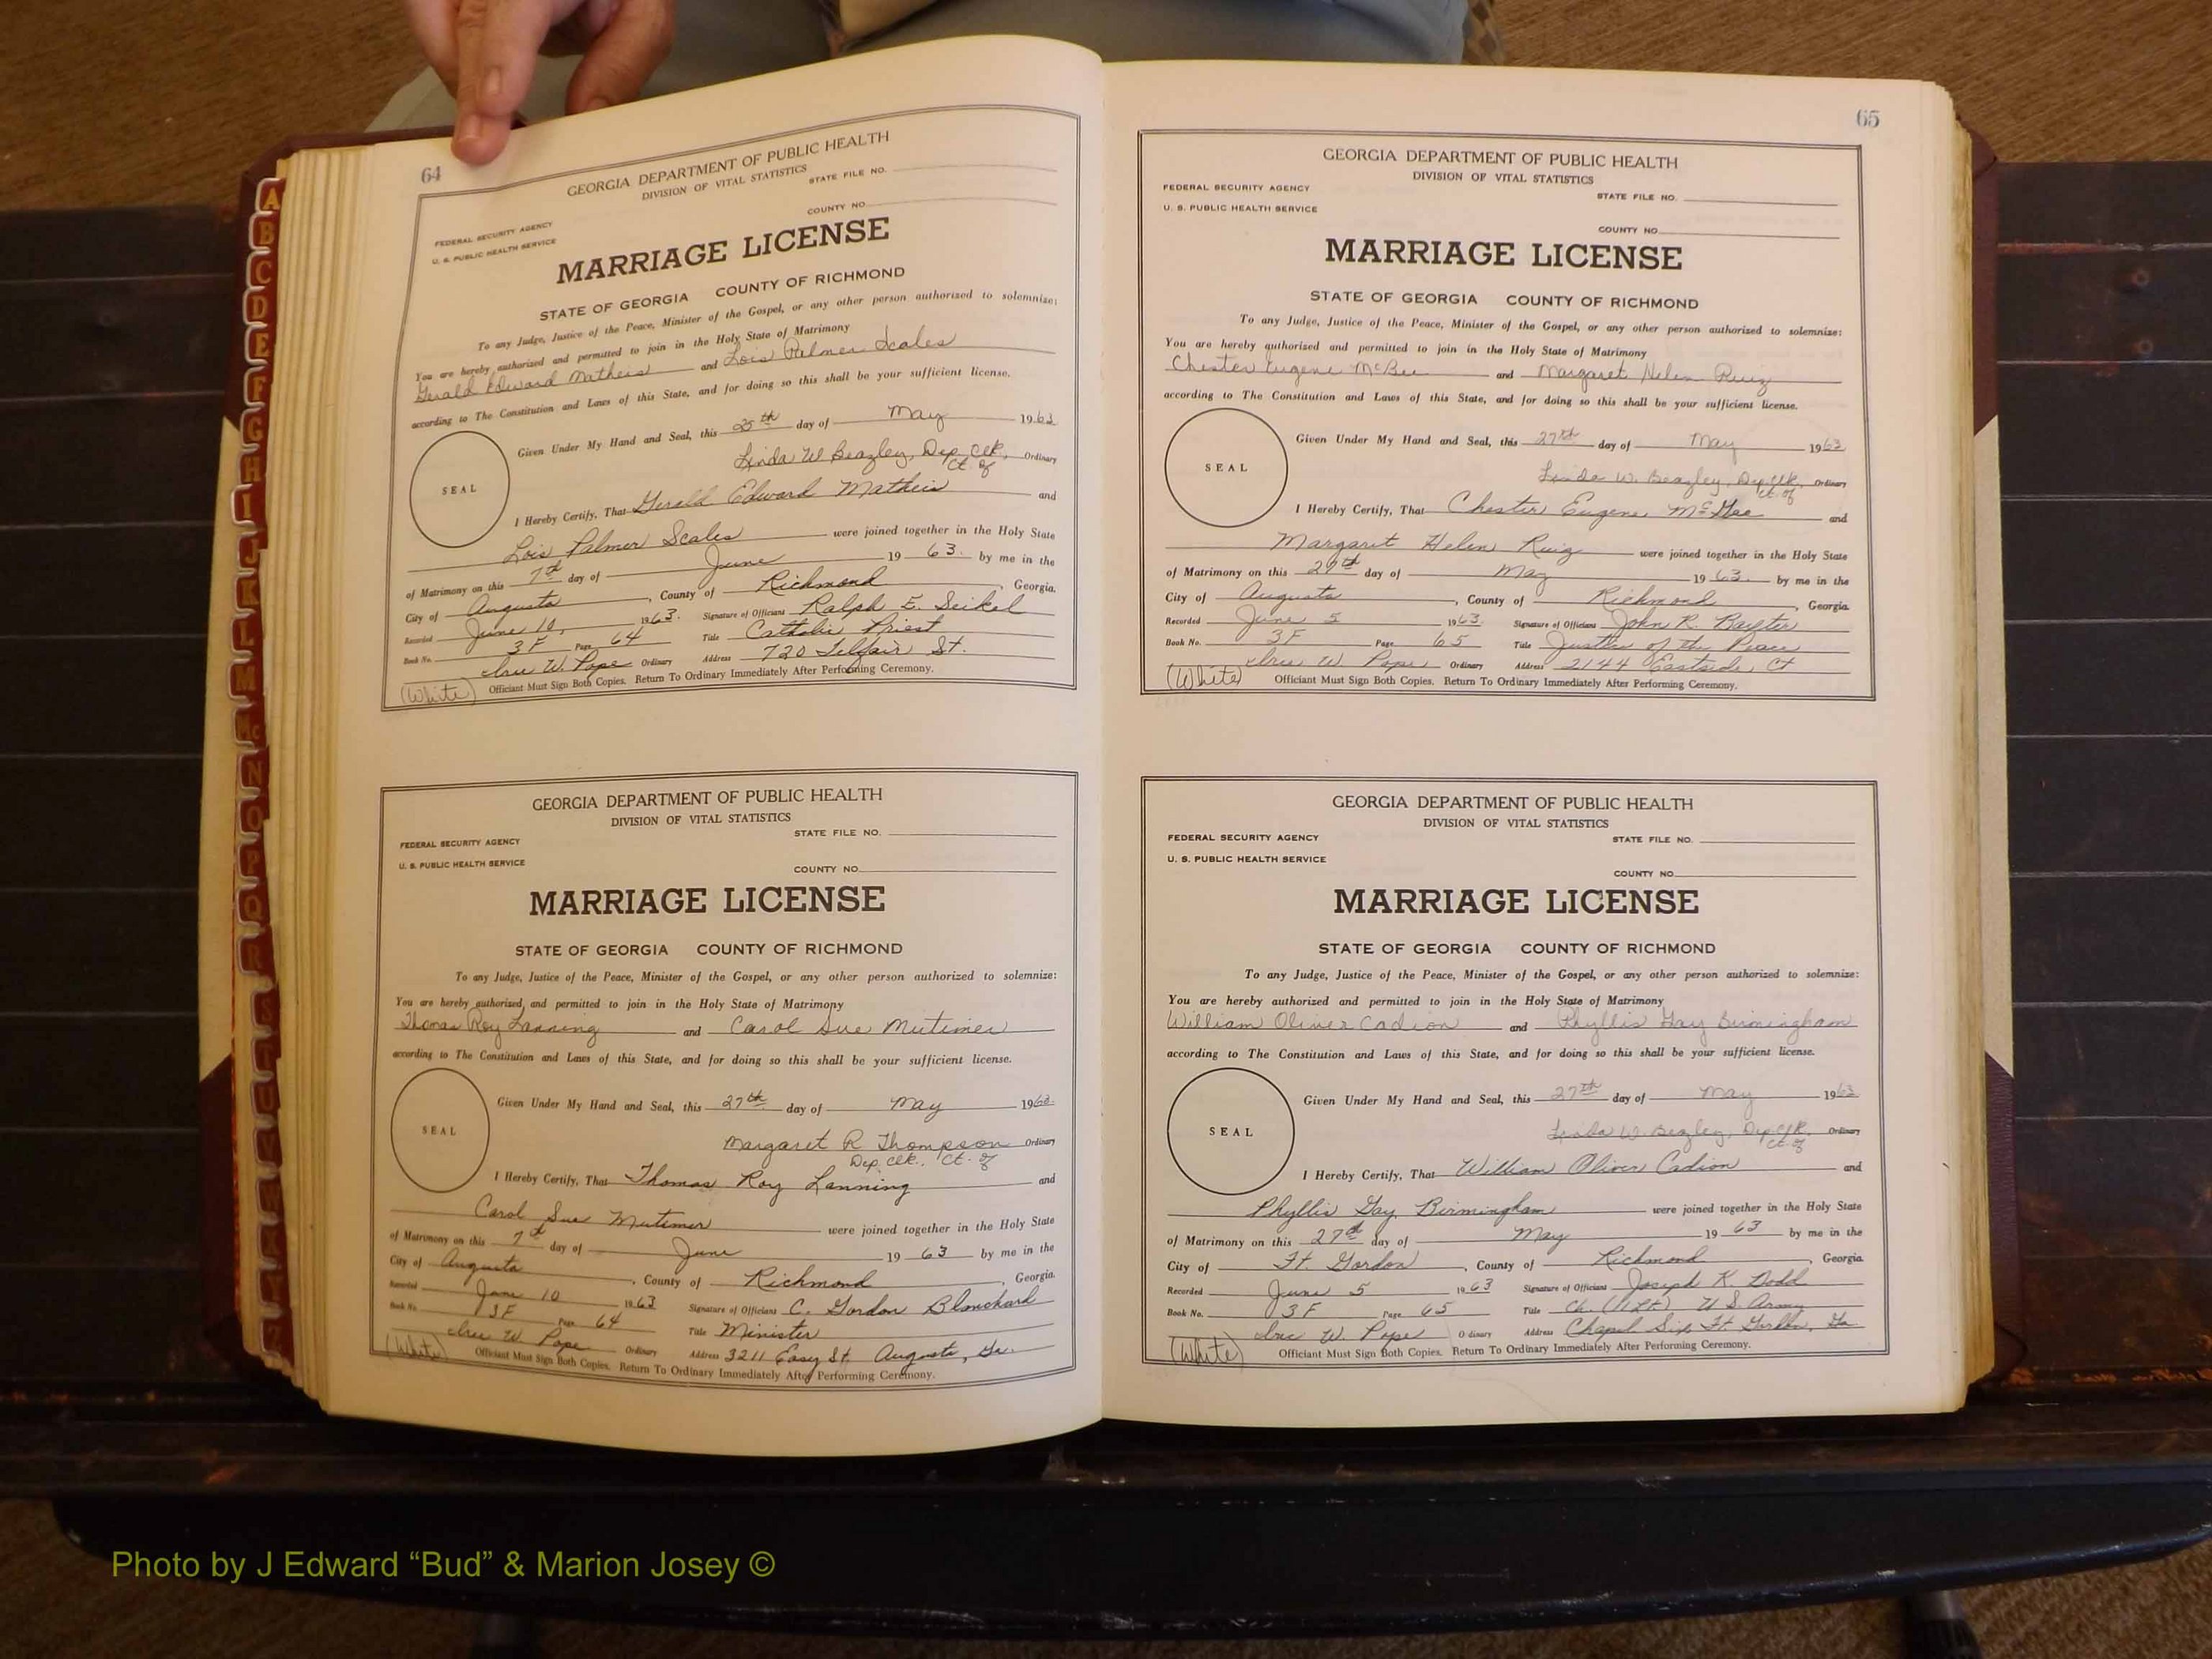 64
GEORGIA DEPARTMENT OF PUBLIC HEALTH
DIVISION OF VITAL STATISTICS
STATE FILE NO.
FEDERAL SECURITY AGENCY
COUNTY NO.
U. S. PUBLIC HEALTH SERVICE
MARRIAGE LICENSE
STATE OF GEORGIA COUNTY OF RICHMOND
To any Judge, Justice of the Peace, Minister of the Gospel, or any other person authorized to solemnize:
You are hereby authorized and permitted to join in the Holy State of Matrimony
Gerald Edward Matheis and Lois Palmer Scales
according to The Constitution and Laws of this State, and for doing so this shall be your sufficient license.
Given Under My Hand and Seal, this 25th day of May 1963
SEAL
Linda W Beazley, Dep. Clk. Ordinary
Ct. of
I Hereby Certify, That Gerald Edward Matheis and
Lois Palmer Scales were joined together in the Holy State
of Matrimony on this 7th day of June 19 63. by me in the
City of Augusta, County of Richmond, Georgia.
Recorded June 10, 1963. Signature of Officiant Ralph E. Seikel
Book No. 3F Page 64 Title Catholic Priest
W. Pope Ordinary Address 720 Telfair St.
(White) Officiant Must Sign Both Copies. Return To Ordinary Immediately After Performing Ceremony.
GEORGIA DEPARTMENT OF PUBLIC HEALTH
DIVISION OF VITAL STATISTICS
STATE FILE NO.
FEDERAL SECURITY AGENCY
U. S. PUBLIC HEALTH SERVICE
COUNTY NO.
MARRIAGE LICENSE
STATE OF GEORGIA COUNTY OF RICHMOND
To any Judge, Justice of the Peace, Minister of the Gospel, or any other person authorized to solemnize:
You are hereby authorized and permitted to join in the Holy State of Matrimony
Thomas Roy Lanning and Carol Sue Mutimer
according to The Constitution and Laws of this State, and for doing so this shall be your sufficient license.
Given Under My Hand and Seal, this 27th day of May 1963.
SEAL
Margaret R Thompson Ordinary
Dep. Clk., Ct. of
I Hereby Certify, That Thomas Roy Lanning and
Carol Sue Mutimer were joined together in the Holy State
of Matrimony on this 7th day of June 19 63 by me in the
City of Augusta, County of Richmond, Georgia.
Recorded June 10 1963 Signature of Officiant C. Gordon Blanchard
Book No. 3F Page 64 Title Minister
W. Pope Ordinary Address 3211 Easy St. Augusta, Ga.
(White) Officiant Must Sign Both Copies. Return To Ordinary Immediately After Performing Ceremony.
65
GEORGIA DEPARTMENT OF PUBLIC HEALTH
DIVISION OF VITAL STATISTICS
FEDERAL SECURITY AGENCY
STATE FILE NO.
U. S. PUBLIC HEALTH SERVICE
COUNTY NO.
MARRIAGE LICENSE
STATE OF GEORGIA COUNTY OF RICHMOND
To any Judge, Justice of the Peace, Minister of the Gospel, or any other person authorized to solemnize:
You are hereby authorized and permitted to join in the Holy State of Matrimony
Chester Eugene and Margaret Helen Ruiz
according to The Constitution and Laws of this State, and for doing so this shall be your sufficient license.
Given Under My Hand and Seal, this 27th day of May 1963
SEAL
Linda W. Beazley, Dep. Clk. Ordinary
Ct. of
I Hereby Certify, That Chester Eugene and
Margaret Helen Ruiz were joined together in the Holy State
of Matrimony on this 29th day of May 19 63. by me in the
City of Augusta, County of Richmond, Georgia.
Recorded June 5 1963. Signature of Officiant John R. Baxter
Book No. 3F Page 65 Title Justice of the Peace
W. Pope Ordinary Address 2144 Eastside, Ct
(White) Officiant Must Sign Both Copies. Return To Ordinary Immediately After Performing Ceremony.
GEORGIA DEPARTMENT OF PUBLIC HEALTH
DIVISION OF VITAL STATISTICS
FEDERAL SECURITY AGENCY
STATE FILE NO.
U. S. PUBLIC HEALTH SERVICE
COUNTY NO.
MARRIAGE LICENSE
STATE OF GEORGIA COUNTY OF RICHMOND
To any Judge, Justice of the Peace, Minister of the Gospel, or any other person authorized to solemnize:
You are hereby authorized and permitted to join in the Holy State of Matrimony
William Oliver Cadion and Phyllis Gay Birmingham
according to The Constitution and Laws of this State, and for doing so this shall be your sufficient license.
Given Under My Hand and Seal, this 27th day of May 1963
SEAL
Linda W. Bezley, Dep. Clk. Ordinary
Ct. of
I Hereby Certify, That William Oliver Cadion and
Phyllis Gay Birmingham were joined together in the Holy State
of Matrimony on this 27th day of May 19 63 by me in the
City of Ft. Gordon, County of Richmond, Georgia.
Recorded June 5 1963 Signature of Officiant Joseph K. Dodd
Book No. 3F Page 65 Title Ch. (1 Lt.) U S. Army
W. Pope Ordinary Address Chapel Six Ft. Gordon, Ga
(White) Officiant Must Sign Both Copies. Return To Ordinary Immediately After Performing Ceremony.
A
B
C
D
E
F
G
H
I
J
K
L
M
Mc
N
O
P
Q
R
S
Photo by J Edward “Bud” & Marion Josey ©